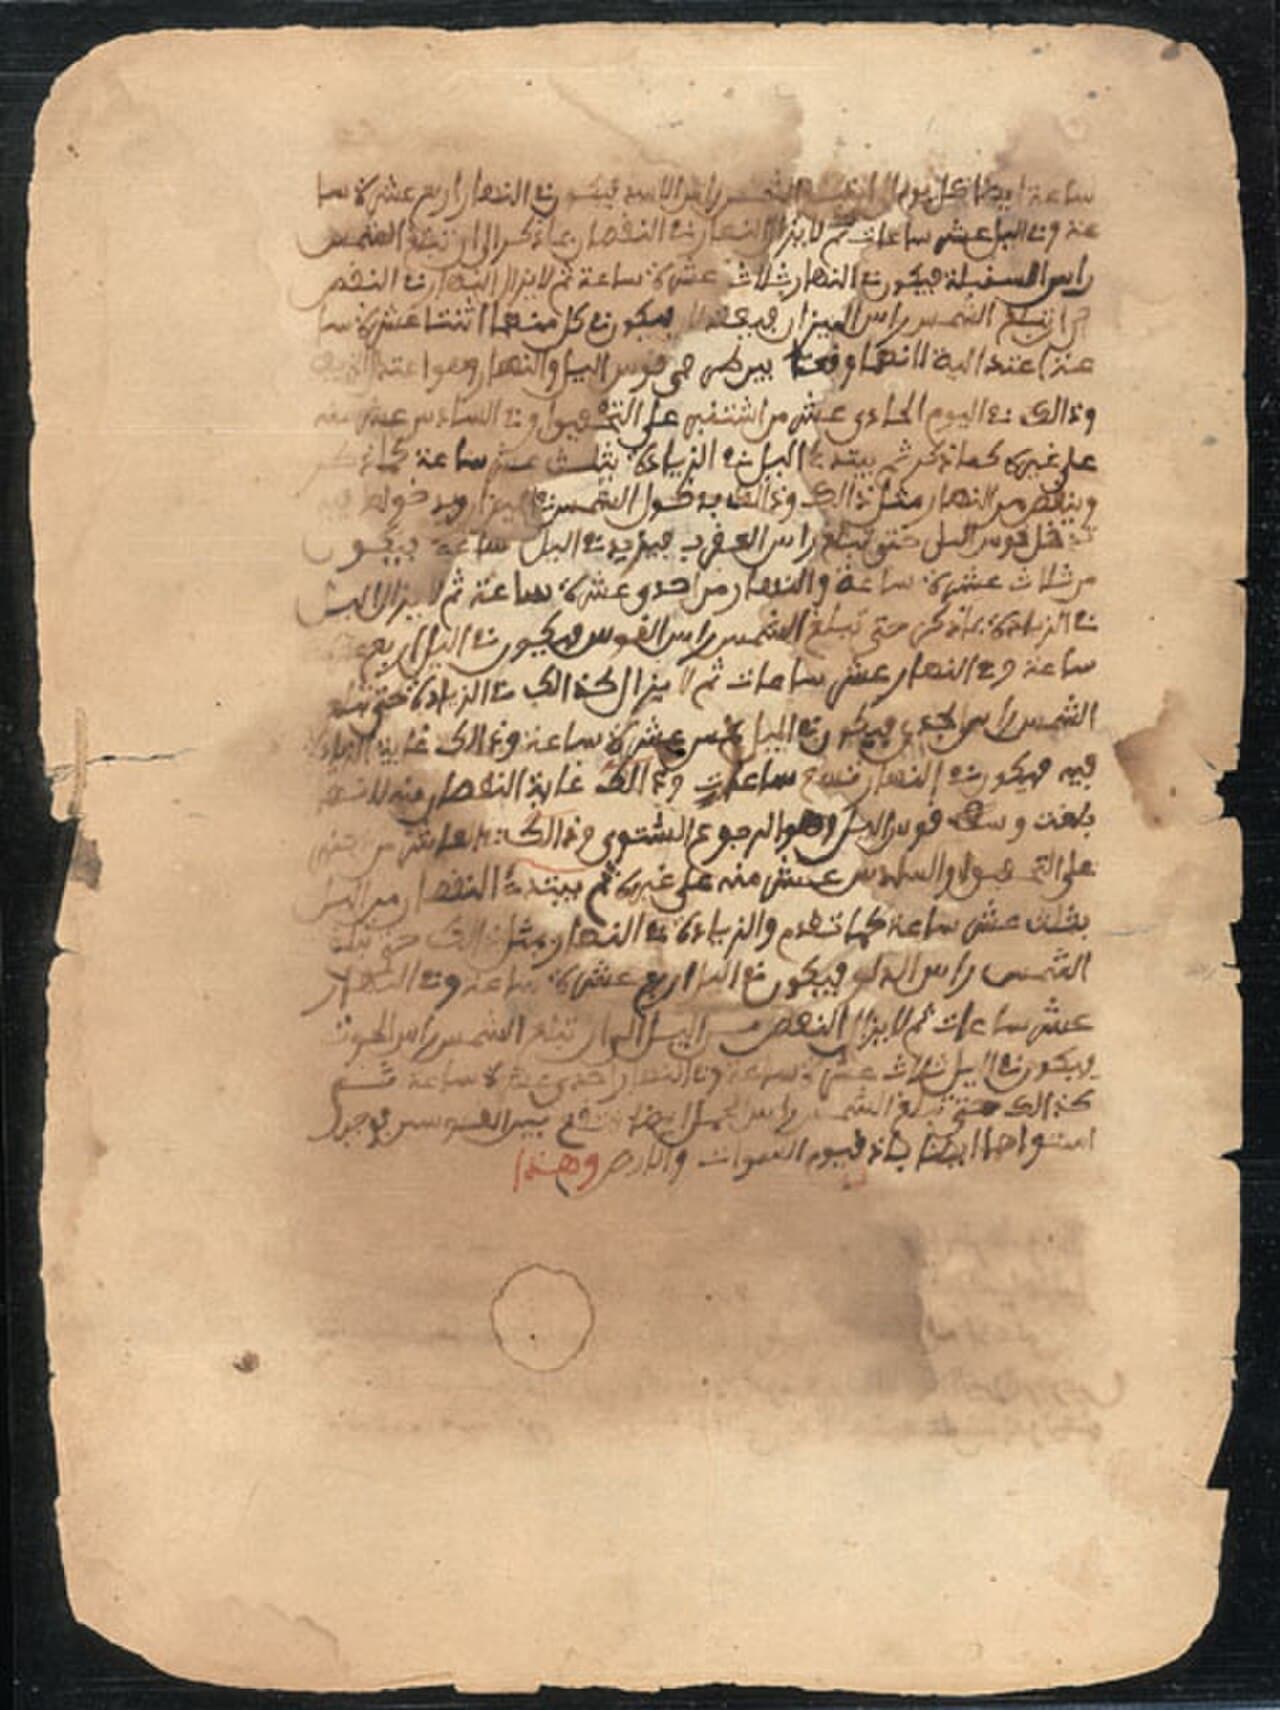 ساعة ايضا كل يوم الشمس راس الاسد فيكون في النهار اربع عشرة سا
عة وفي اليل عشر ساعات ثم لا يزال النهار في النقصان بما ذكر الى ان تبلغ الشمس
راس السنبلة فيكون في النهار ثلاث عشرة ساعة ثم لا يزال النهار في النقص
تبلغ الشمس راس الميزان فيكون في كل منهما اثنتا عشرة سا
عة لانها وقعت بين قوس اليل والنهار وهو اعتدال
وذالك في اليوم الحادي عشر من اشتنبر على التحقيق وفي السادس عشر منه
على غيره كما ذكر ثم يبتدئ اليل في الزيادة بثلث عشر ساعة كما ذكر
وينقص من النهار مثل ذالك وذالك بدخول الشمس في الميزان
قوس اليل حتى تبلغ راس العقرب فيزيد في اليل ساعة فيكون
من ثلاث عشرة ساعة والنهار من احدى عشرة ساعة ثم لا يزال اليل
في الزيادة بما ذكر حتى تبلغ الشمس راس القوس فيكون في اليل اربع عشرة
ساعة وفي النهار عشر ساعات ثم لا يزال كذالك في الزيادة حتى تبلغ
الشمس راس الجدي فيكون في اليل خمس عشرة ساعة وذالك غاية الزيادة
فيه فيكون في النهار تسع ساعات وذالك غاية النقصان منه لانها
بلغت وسط قوس اليل وهو الرجوع الشتوي وذالك
على التحقيق والسادس عشر منه على غيره ثم يبتدئ النقصان من اليل
بثلث عشر ساعة كما تقدم والزيادة في النهار مثل ذالك حتى تبلغ
الشمس راس الدلو فيكون في اليل اربع عشرة ساعة وفي النهار
عشر ساعات ثم لا يزال النقص من اليل الى ان تبلغ الشمس راس الحوت
فيكون في اليل ثلاث عشرة ساعة وفي النهار احدى عشرة ساعة ثم
كذالك حتى تبلغ الشمس راس الحمل ايضا فتقع بين القوسين فوجد
استواهما ايضا قيوم السموات والارض وهذا